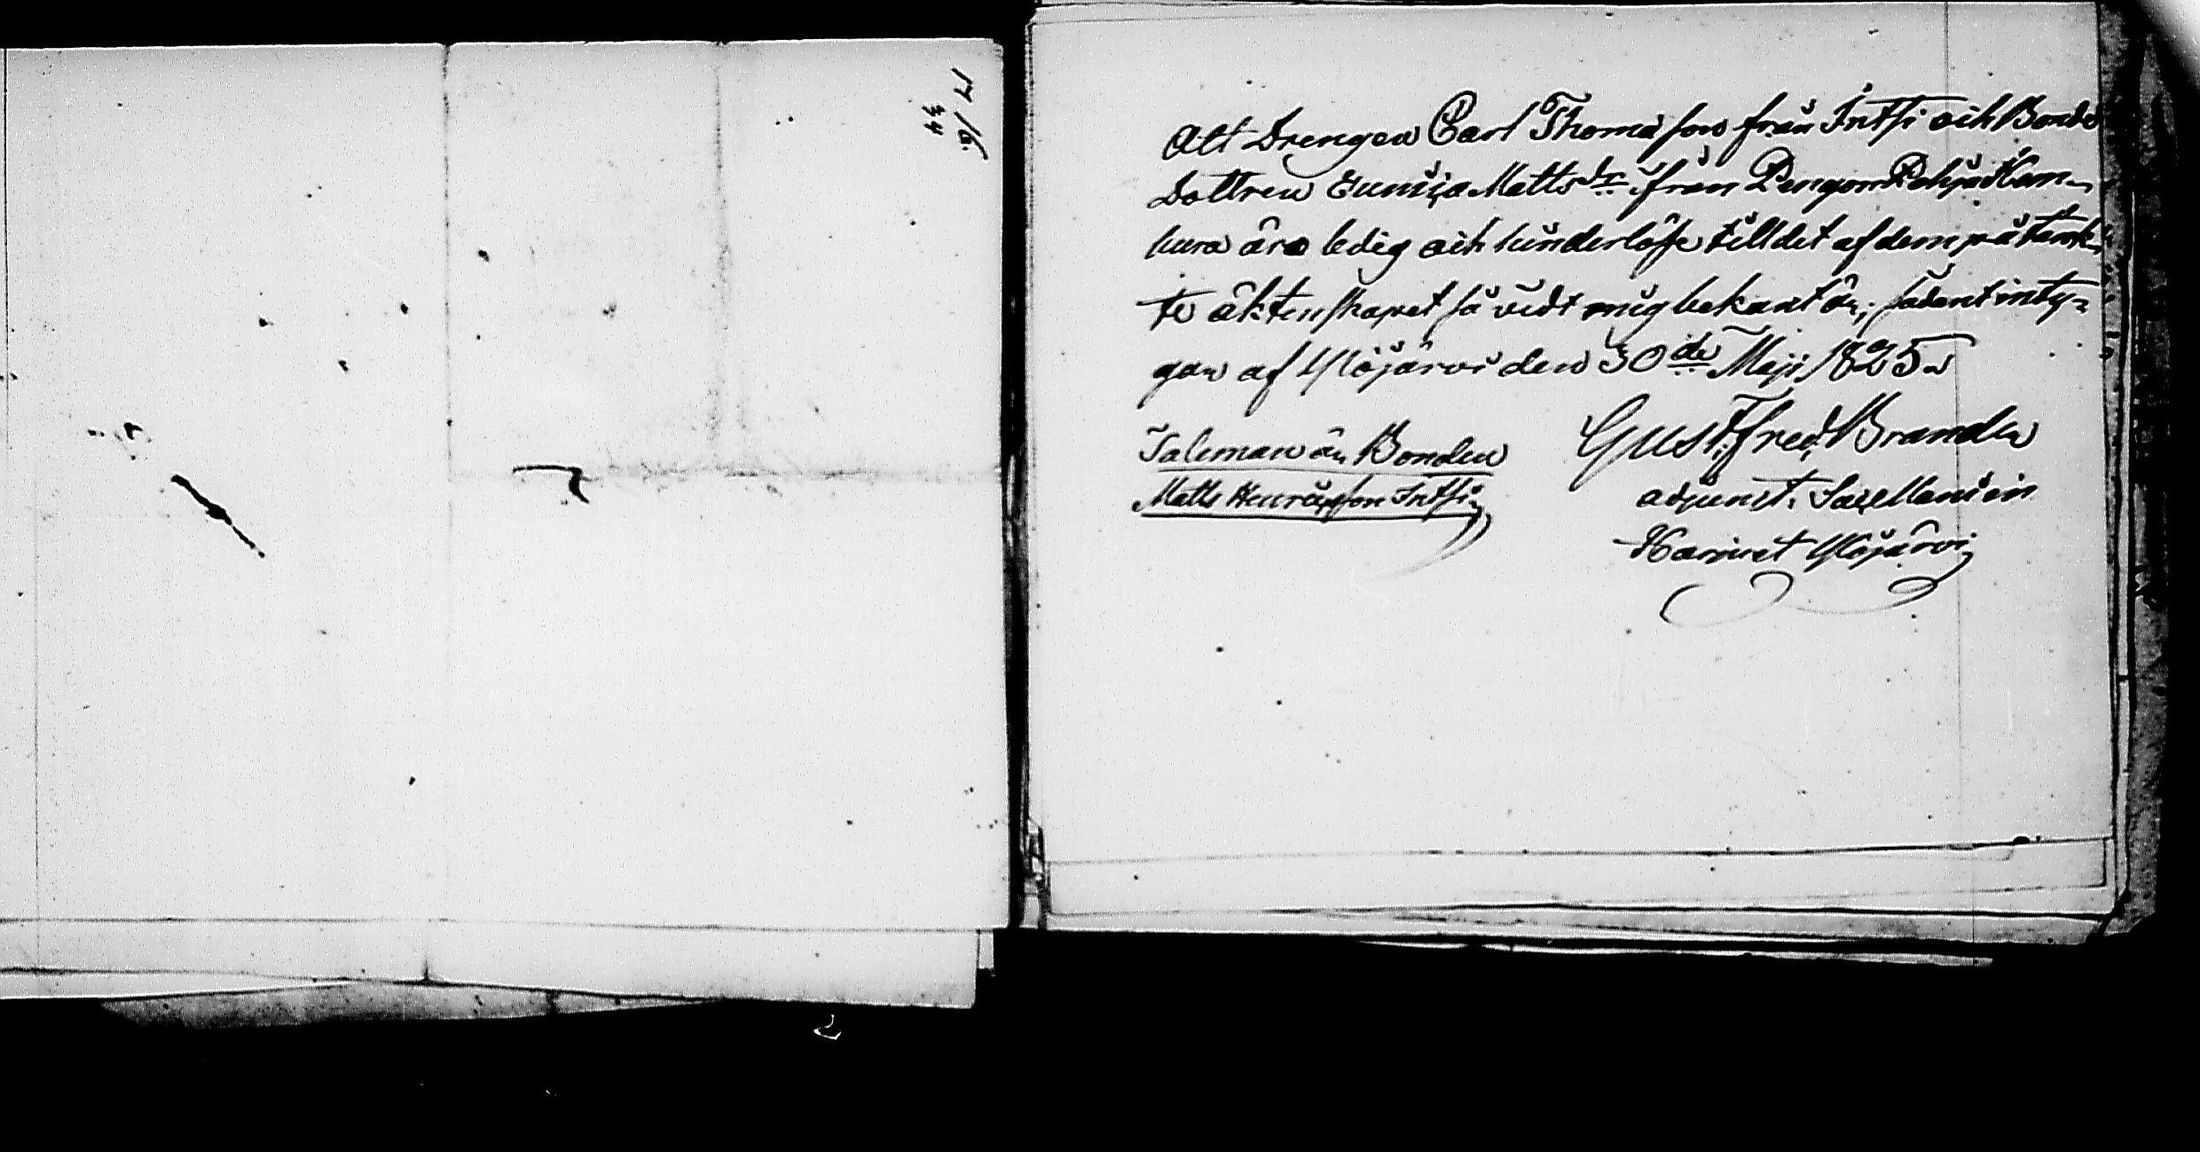 17/6.
34
Att Drengen Carl Thomasson från Intti och Bonde
Dottren Eunica Matts dr. ifrån Pengon Pohja Kan-
kura äro ledig och hinderlösse till det af dem påtänk-
te äktenskapet så vidt mig bekant är, sådant inty-
gar af Ylöjärvi den 30de Maji 1825.
Taleman är Bonden
Matts Henricsson Intti
Gust: Fred: Brander
adjunct. Sacellani in
Hämeet Ylöjärvi